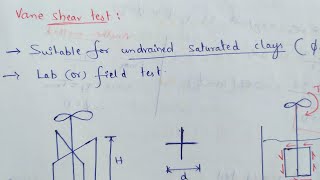 Vane shear test:
→ Suitable for undrained saturated clays (ϕ
→ Lab (or) field test
H
d
T